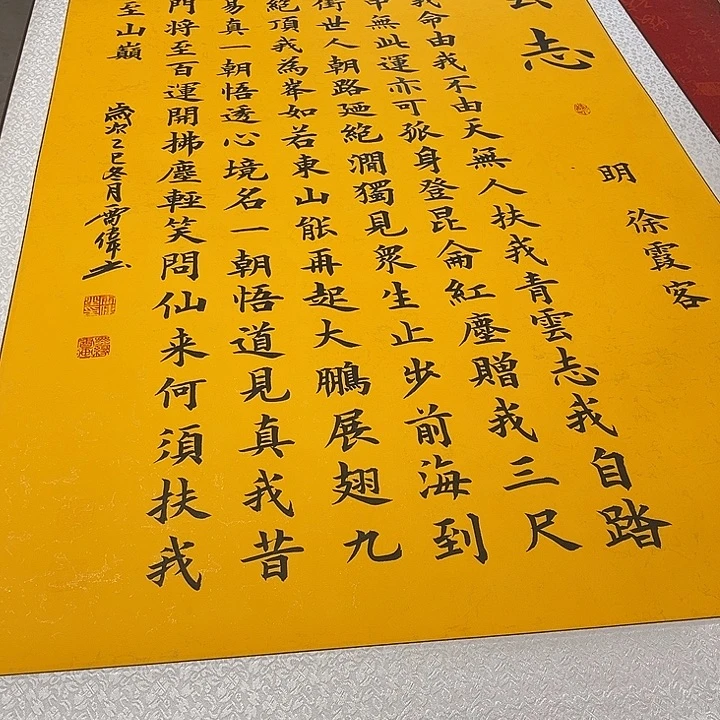 雲志
明 徐霞客
我命由我不由天無人扶我青雲志我自踏
中無此運亦可孤身登昆侖紅塵贈我三尺
衝世人朝路廼絕澗獨見衆生止步前海到
絕頂我為峯如若東山能再起大鵬展翅九
易真一朝悟透心境名一朝悟道見真我昔
門將至百運開拂塵輕笑問仙来何須扶我
至山巔
歲次乙巳冬月雷偉書